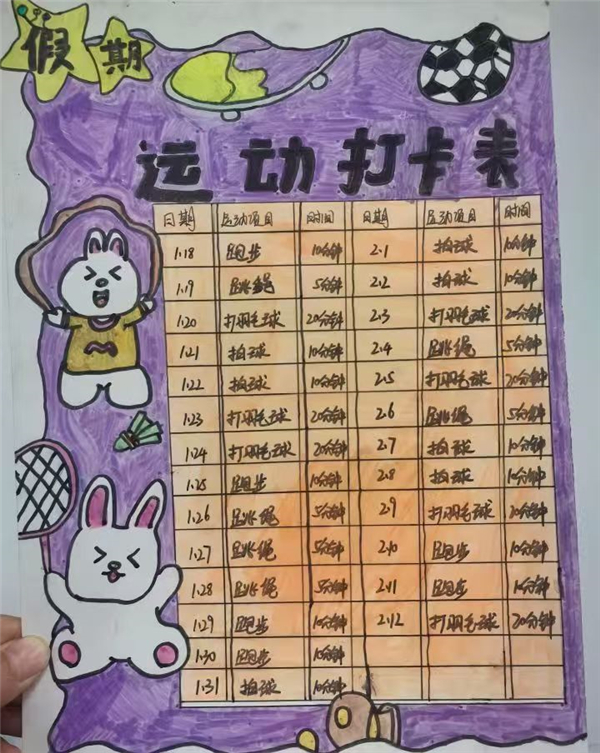 假期
运动打卡表
日期 运动项目 时间 日期 运动项目 时间
1.18 跑步 10分钟 2.1 拍球 10分钟
1.19 跳绳 5分钟 2.2 拍球 10分钟
1.20 打羽毛球 20分钟 2.3 打羽毛球 20分钟
1.21 拍球 10分钟 2.4 跳绳 5分钟
1.22 拍球 10分钟 2.5 打羽毛球 20分钟
1.23 打羽毛球 20分钟 2.6 跳绳 5分钟
1.24 打羽毛球 20分钟 2.7 拍球 10分钟
1.25 跑步 10分钟 2.8 拍球 10分钟
1.26 跳绳 5分钟 2.9 打羽毛球 20分钟
1.27 跳绳 5分钟 2.10 跑步 10分钟
1.28 跳绳 5分钟 2.11 跑步 10分钟
1.29 跑步 10分钟 2.12 打羽毛球 20分钟
1.30 跑步 10分钟
1.31 拍球 10分钟